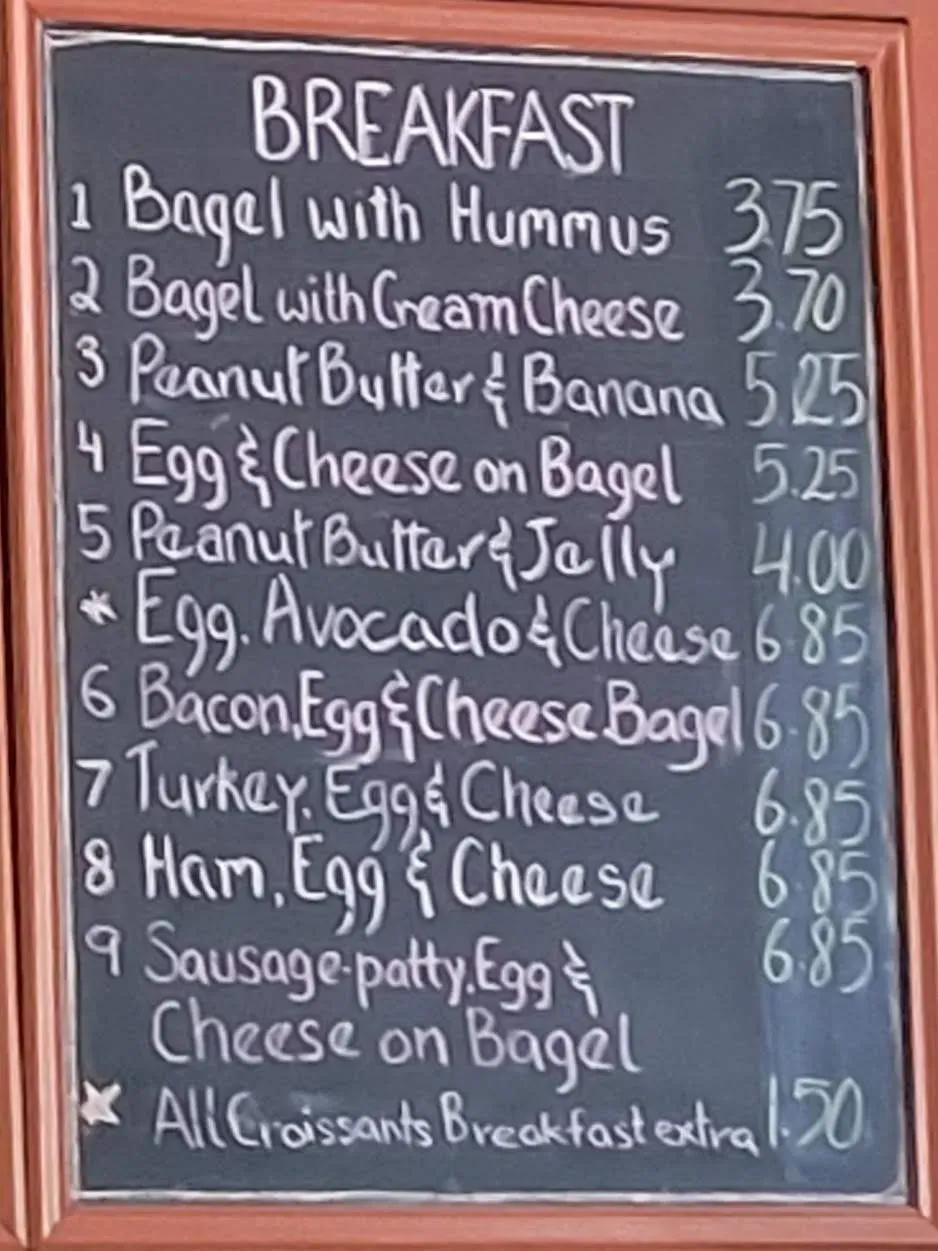 BREAKFAST
1 Bagel with Hummus 3.75
2 Bagel with Cream Cheese 3.70
3 Peanut Butter & Banana 5.25
4 Egg & Cheese on Bagel 5.25
5 Peanut Butter & Jelly 4.00
* Egg. Avocado & Cheese 6.85
6 Bacon, Egg & Cheese Bagel 6.85
7 Turkey, Egg & Cheese 6.85
8 Ham, Egg & Cheese 6.85
9 Sausage-patty, Egg & 6.85
Cheese on Bagel
* All Croissants Breakfast extra 1.50